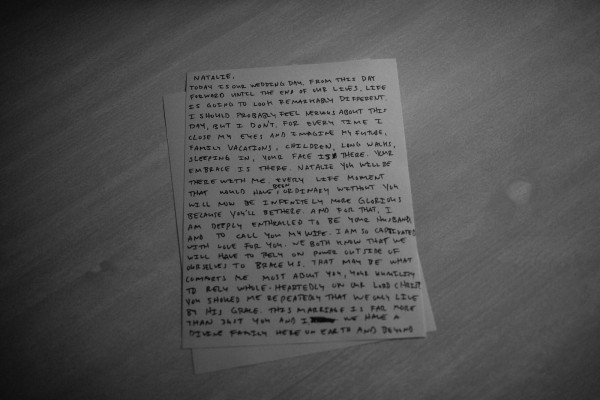 NATALIE,
TODAY IS OUR WEDDING DAY. FROM THIS DAY
FORWARD UNTIL THE END OF OUR LIVES, LIFE
IS GOING TO LOOK REMARKABLY DIFFERENT.
I SHOULD PROBABLY FEEL NERVOUS ABOUT THIS
DAY, BUT I DON'T. FOR EVERY TIME I
CLOSE MY EYES AND IMAGINE MY FUTURE,
FAMILY VACATIONS, CHILDREN, LONG WALKS,
SLEEPING IN, YOUR FACE IS THERE. YOUR
EMBRACE IS THERE. NATALIE YOU WILL BE
THERE WITH ME. EVERY LIFE MOMENT
THAT WOULD HAVE BEEN ORDINARY WITHOUT YOU
WILL NOW BE INFINITELY MORE GLORIOUS
BECAUSE YOU'LL BE THERE. AND FOR THAT, I
AM DEEPLY ENTHRALLED TO BE YOUR HUSBAND
AND TO CALL YOU MY WIFE. I AM SO CAPTIVATED
WITH LOVE FOR YOU. WE BOTH KNOW THAT WE
WILL HAVE TO RELY ON POWER OUTSIDE OF
OURSELVES TO BRACE US. THAT MAY BE WHAT
ME MOST ABOUT YOU, YOUR HUMILITY
TO RELY WHOLE-HEARTEDLY ON OUR LORD CHRIST
YOU SHOWED ME REPEATEDLY THAT WE ONLY LIVE
BY HIS GRACE. THIS MARRIAGE IS FAR MORE
THAN JUST YOU AND I WE HAVE A
DIVINE FAMILY HERE ON EARTH AND BEYOND